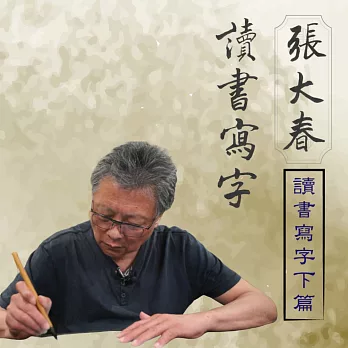 張大春
讀書寫字
讀書寫字下篇